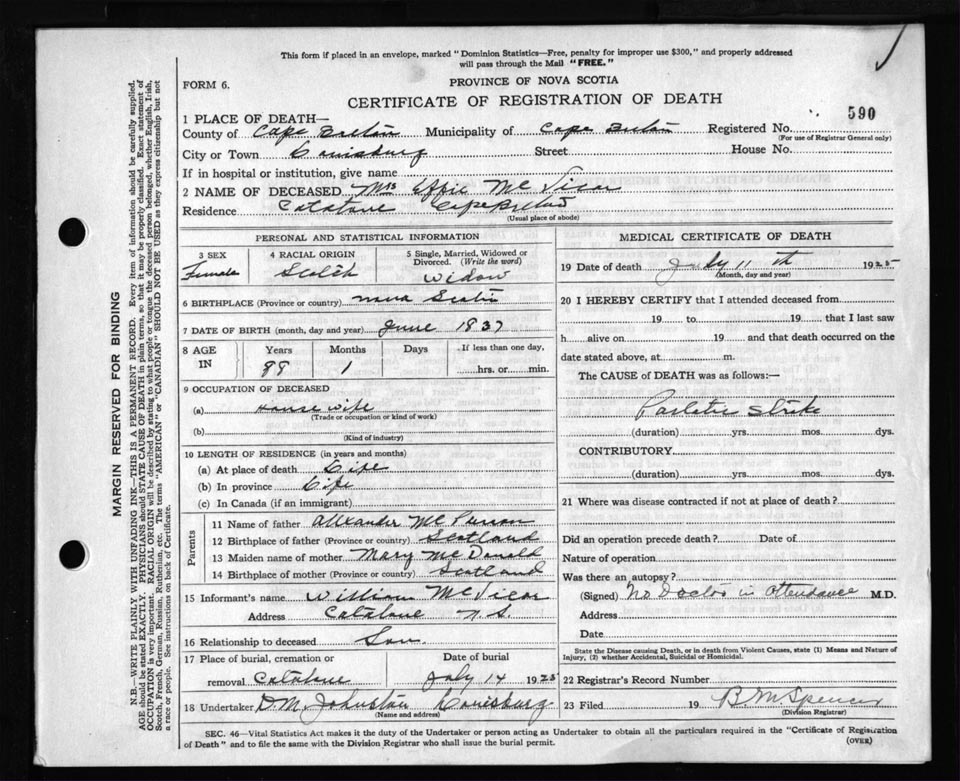 This form if placed in an envelope, marked "Dominion Statistics—Free, penalty for improper use $300," and properly addressed
will pass through the Mail "FREE."
FORM 6.
PROVINCE OF NOVA SCOTIA
CERTIFICATE OF REGISTRATION OF DEATH
590
1 PLACE OF DEATH—
County of Cape Breton Municipality of Cape Breton Registered No.
(For use of Registrar General only)
City or Town Louisburg Street House No.
If in hospital or institution, give name
2 NAME OF DECEASED Mrs Effie McVicar
Residence Catalone Cape Breton
(Usual place of abode)
PERSONAL AND STATISTICAL INFORMATION
3 SEX Female
4 RACIAL ORIGIN Scotch
5 Single, Married, Widowed or Divorced. (Write the word) Widow
6 BIRTHPLACE (Province or country) Nova Scotia
7 DATE OF BIRTH (month, day and year) June 1837
8 AGE IN Years 88 Months 1 Days If less than one day, hrs. or min.
9 OCCUPATION OF DECEASED
(a) House wife
(Trade or occupation or kind of work)
(b)
(Kind of industry)
10 LENGTH OF RESIDENCE (in years and months)
(a) At place of death Life
(b) In province Life
(c) In Canada (if an immigrant)
Parents
11 Name of father Alexander McPherson
12 Birthplace of father (Province or country) Scotland
13 Maiden name of mother Mary McDonald
14 Birthplace of mother (Province or country) Scotland
15 Informant's name William McVicar
Address Catalone N.S.
16 Relationship to deceased Son.
17 Place of burial, cremation or removal Catalone
Date of burial July 14 1925
18 Undertaker D.M. Johnston Louisburg
(Name and address)
MEDICAL CERTIFICATE OF DEATH
19 Date of death July 11th 1925
(Month, day and year)
20 I HEREBY CERTIFY that I attended deceased from
19 to 19 that I last saw
h alive on 19 and that death occurred on the
date stated above, at m.
The CAUSE of DEATH was as follows:—
Paraletic stroke
(duration) yrs. mos. dys.
CONTRIBUTORY.
(duration) yrs. mos. dys.
21 Where was disease contracted if not at place of death?
Did an operation precede death? Date of
Nature of operation
Was there an autopsy?
(Signed) No Doctor in attendance M.D.
Address
Date
State the Disease Causing Death, or in death from Violent Causes, state (1) Means and Nature of
Injury, (2) whether Accidental, Suicidal or Homicidal.
22 Registrar's Record Number
23 Filed 19 B. M. Spencer
(Division Registrar)
SEC. 46—Vital Statistics Act makes it the duty of the Undertaker or person acting as Undertaker to obtain all the particulars required in the "Certificate of Registration
of Death" and to file the same with the Division Registrar who shall issue the burial permit.
(OVER)
MARGIN RESERVED FOR BINDING
N.B.—WRITE PLAINLY WITH UNFADING INK—THIS IS A PERMANENT RECORD. Every item of information should be carefully supplied.
AGE should be stated EXACTLY. PHYSICIANS should STATE CAUSE OF DEATH in plain terms, so that it may be properly classified. Exact statement of
OCCUPATION is very important. RACIAL ORIGIN will be described by stating to what people or tongue the deceased person belonged, whether English, Irish,
Scotch, French, German, Russian, Ruthenian, etc. The terms "AMERICAN" or "CANADIAN" SHOULD NOT BE USED as they express citizenship but not
a race or people. See instructions on back of Certificate.